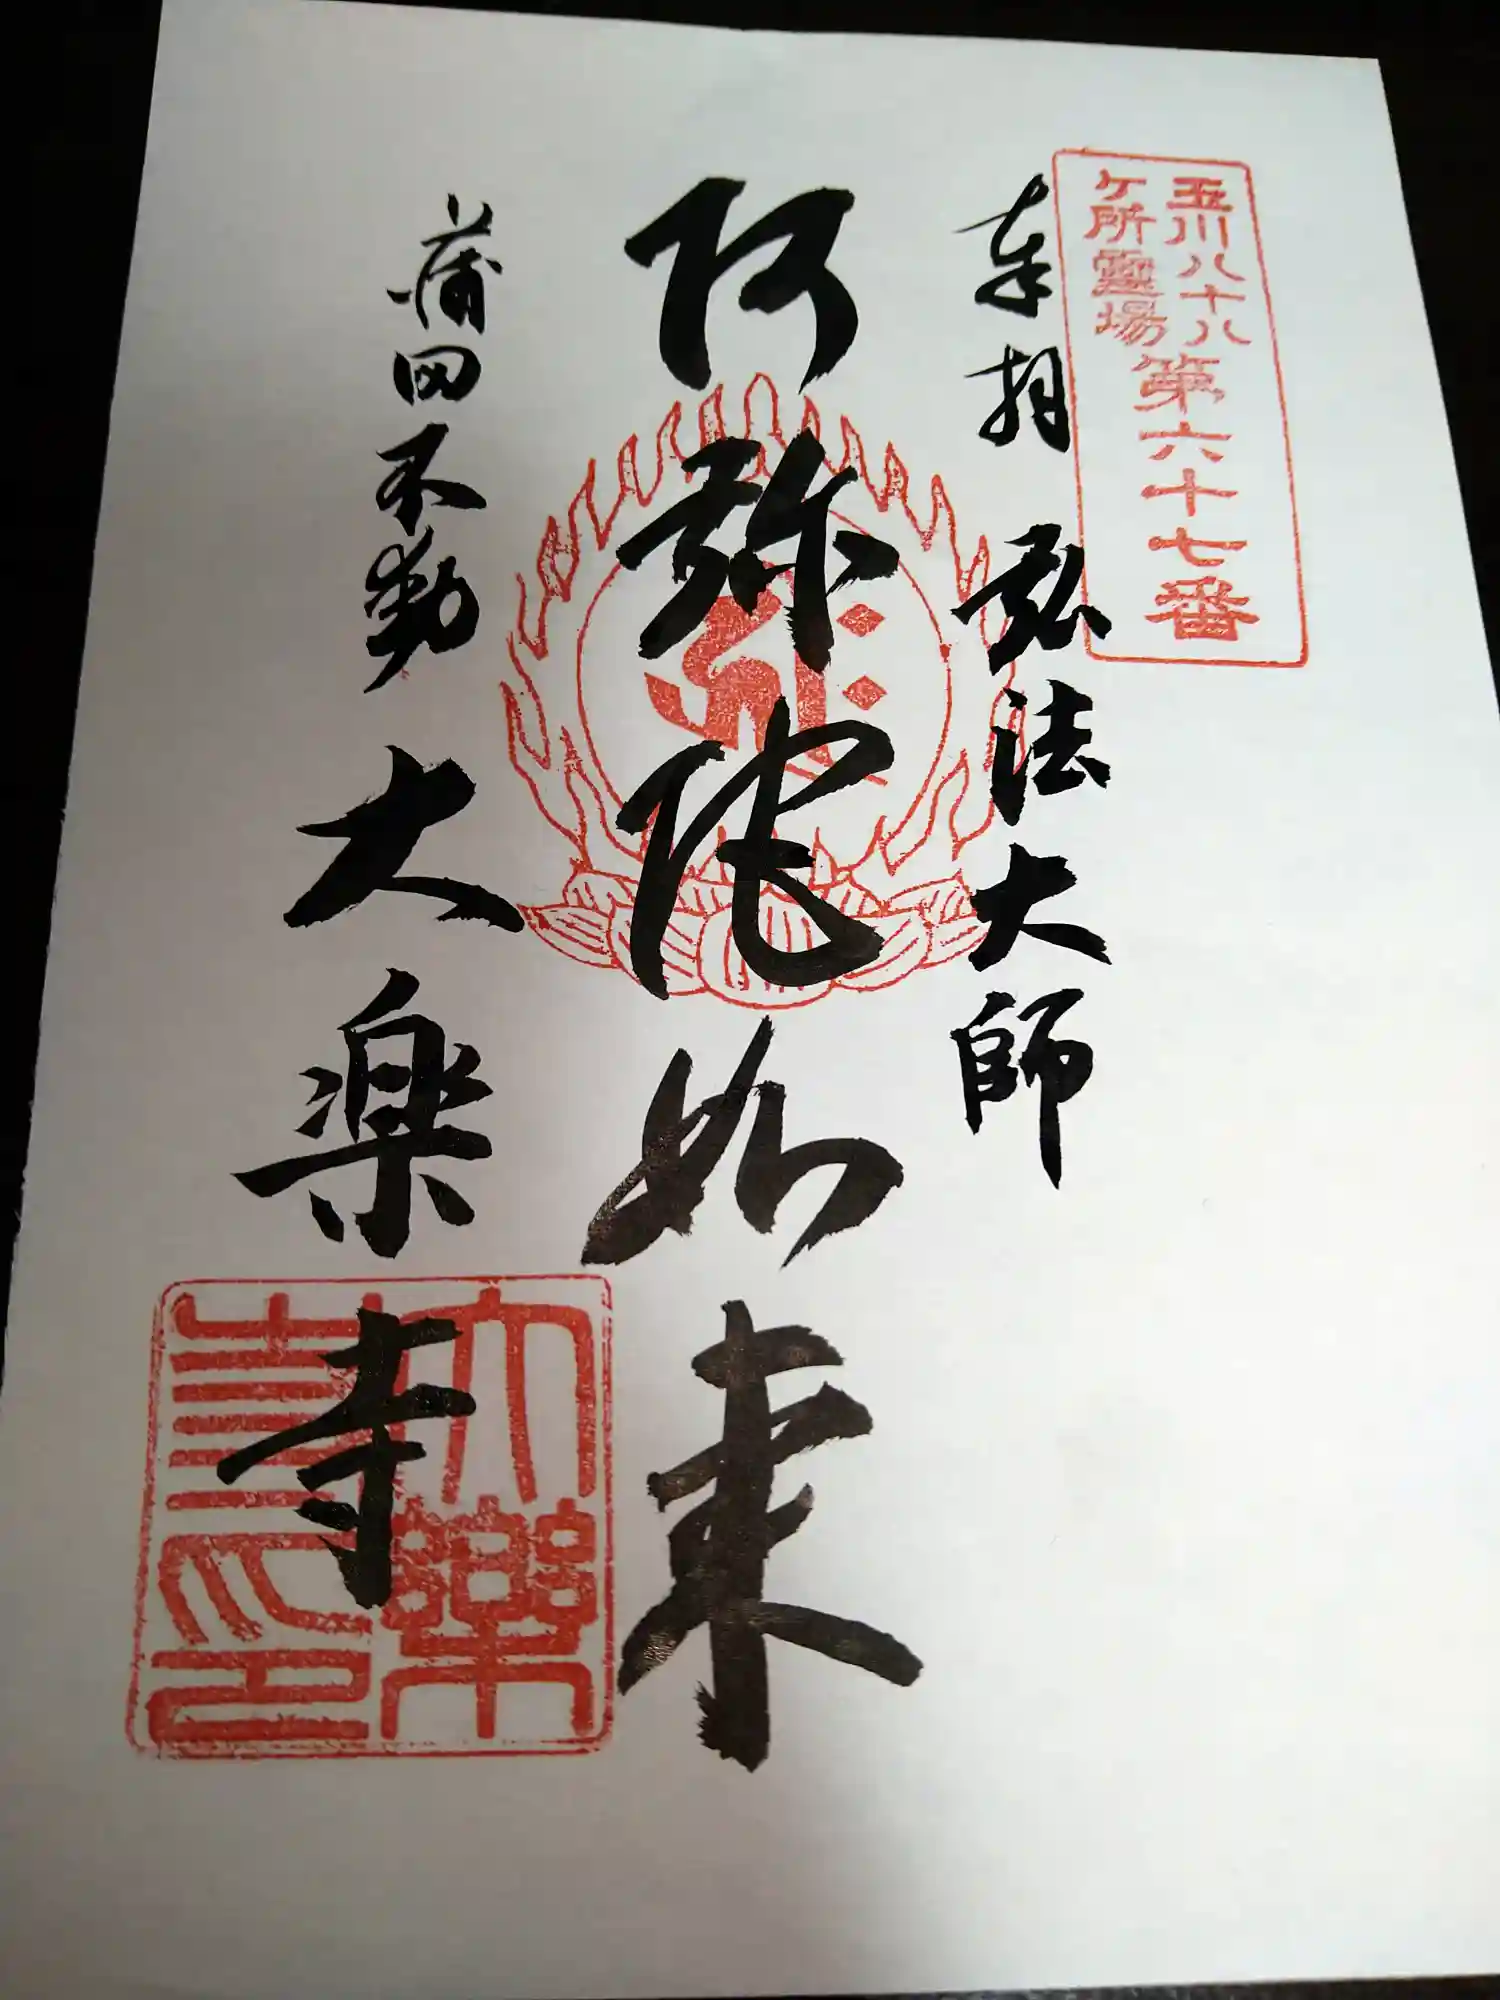 玉川八十八
ケ所霊場
第六十七番
奉拝 弘法大師
阿弥陀如来
蒲田不動 大楽寺